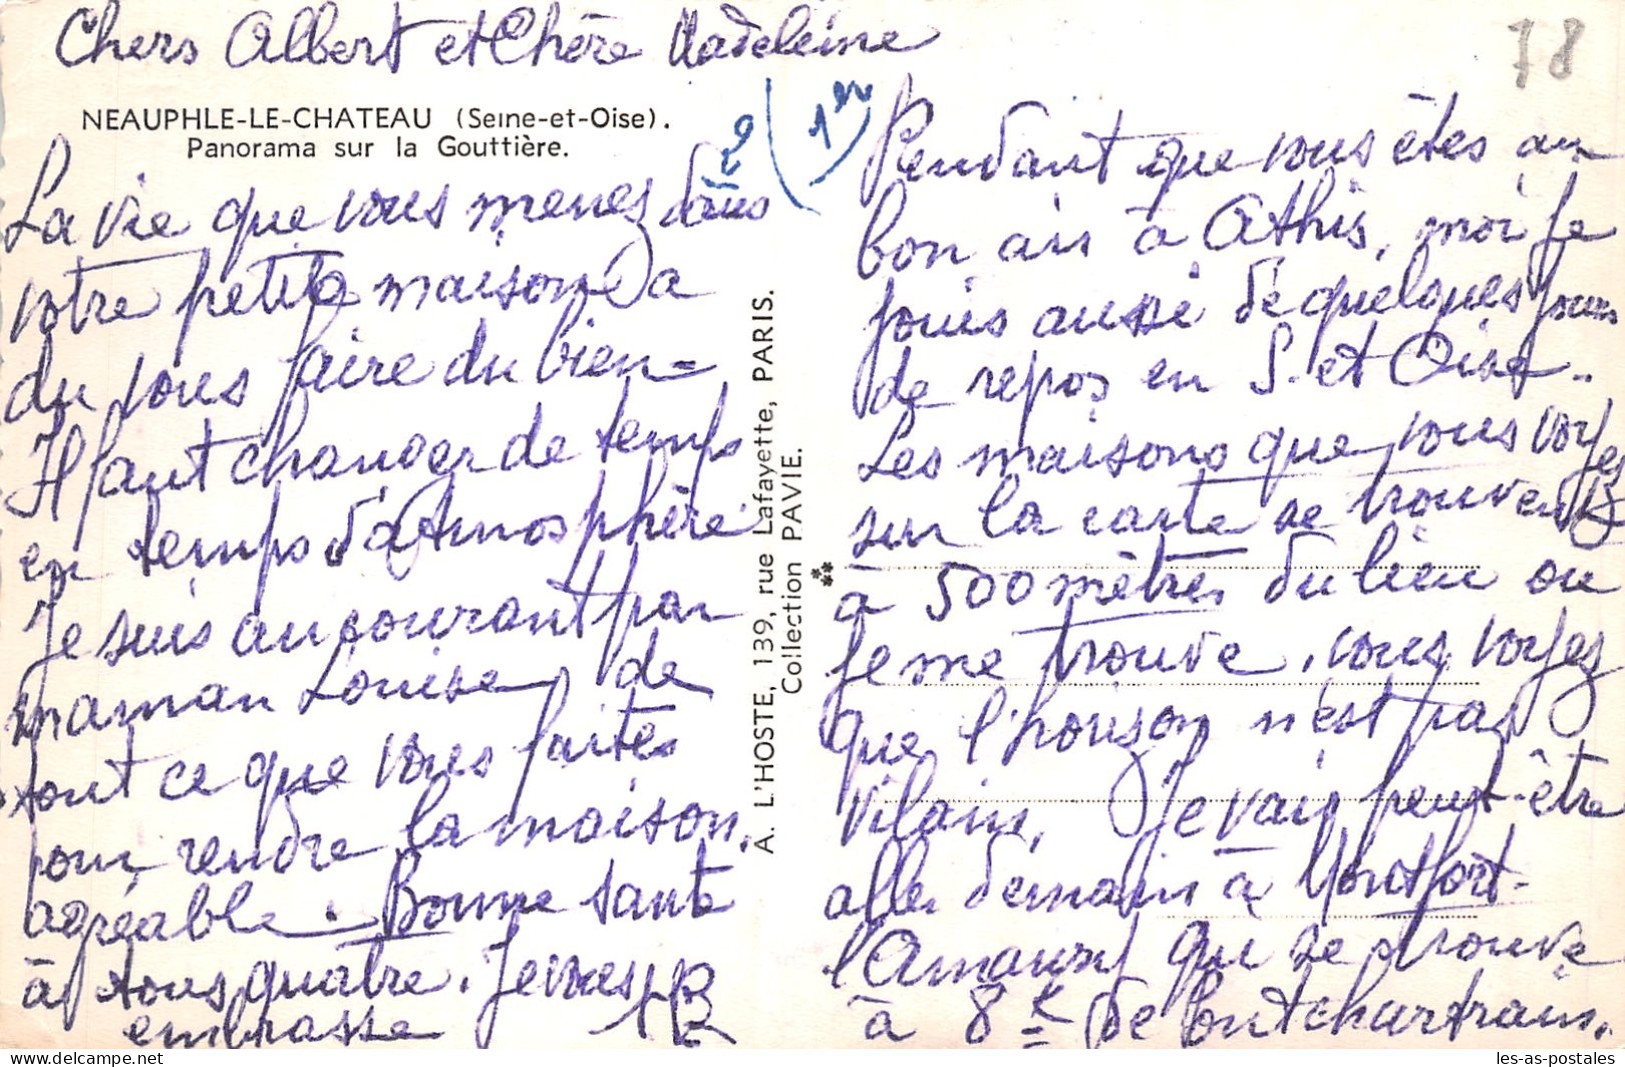 Chers Albert et Chère Madeleine
78
NEAUPHLE-LE-CHATEAU (Seine-et-Oise).
Panorama sur la Gouttière.
1er
Pendant que vous êtes au
bon air à Athis, moi je
jouis aussi de quelques jours
de repos en S. et Oise..
Les maisons que vous voyez
sur la carte se trouvent
à 500 mètres du lieu ou
je me trouve. vous voyez
que l'horizon n'est pas
vilain. Je vais peut-être
aller demain à Montfort-
l'Amaury qui se trouve
à 8 k de Pontchartrain.
2
La vie que vous menez dans
votre petite maison a
du vous faire du bien =
Il faut changer de temps
en temps d'atmosphère
Je suis au courant par
maman Louise, de
tout ce que vous faites
pour rendre la maison.
agréable. Bonne santé
à tous quatre. Je vous
embrasse
A. L'HOSTE, 139, rue Lafayette, PARIS.
Collection PAVIE.
les-as-postales